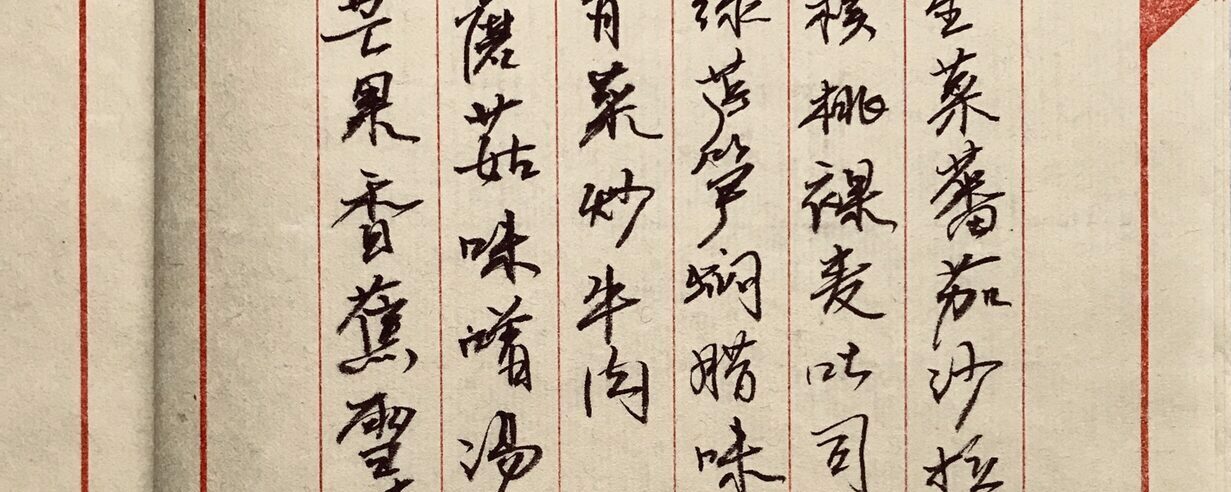 生菜蕃茄沙拉
核桃裸麦吐司
绿芦笋焖腊味
青菜炒牛肉
蘑菇味噌湯
芒果香蕉聖